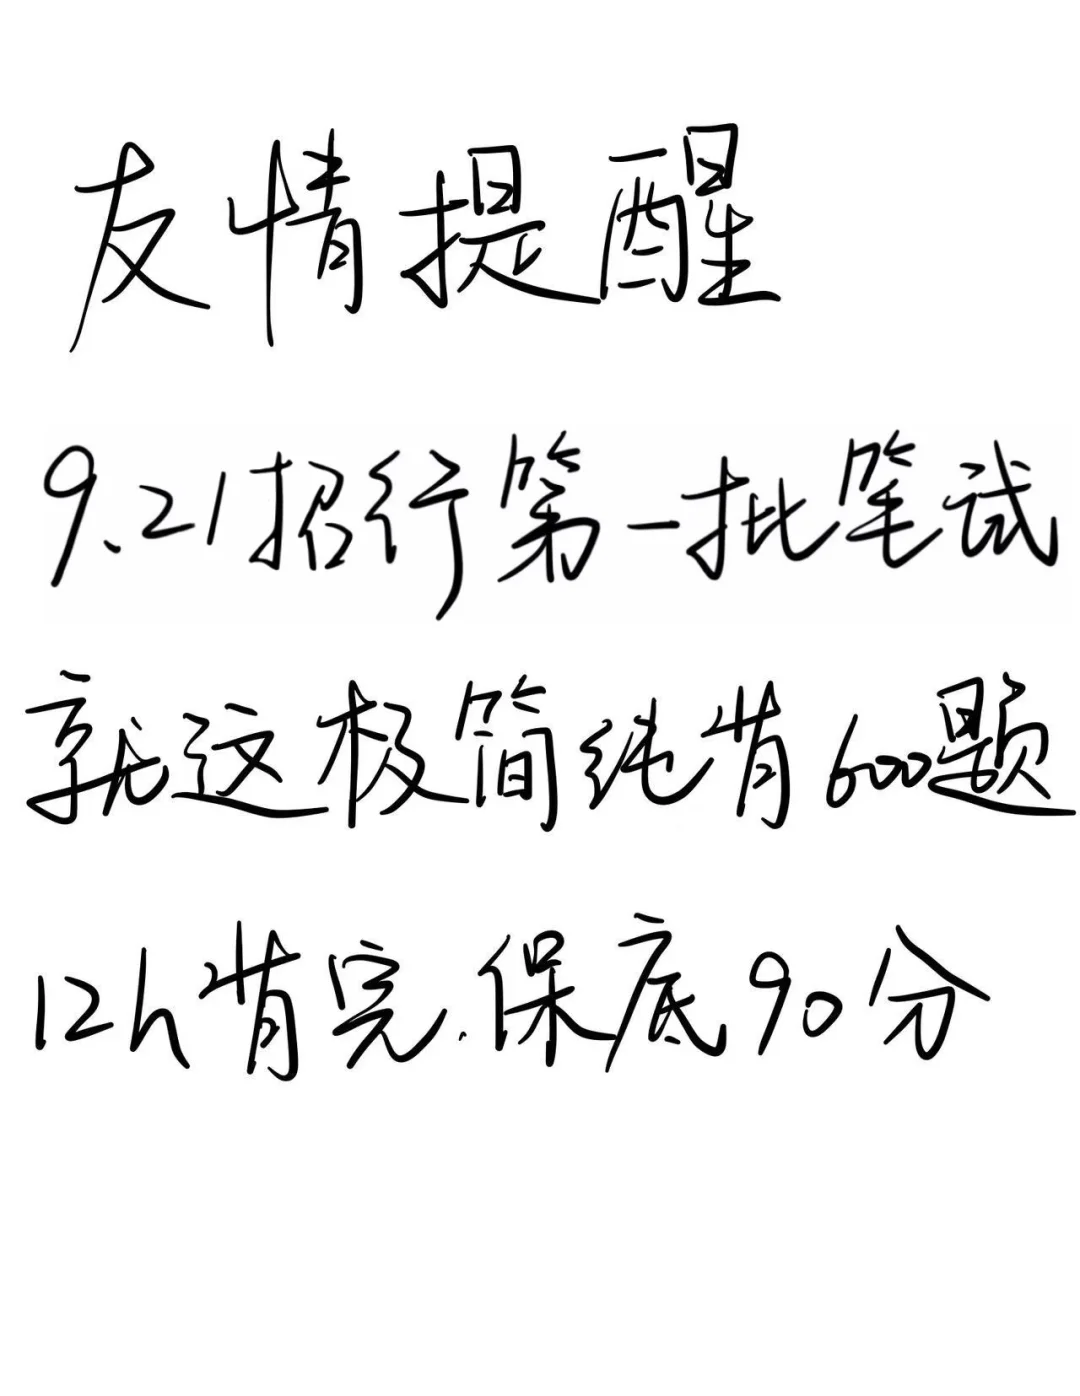 友情提醒
9.21招行第一批笔试
就这极简纯背600题
12h背完.保底90分